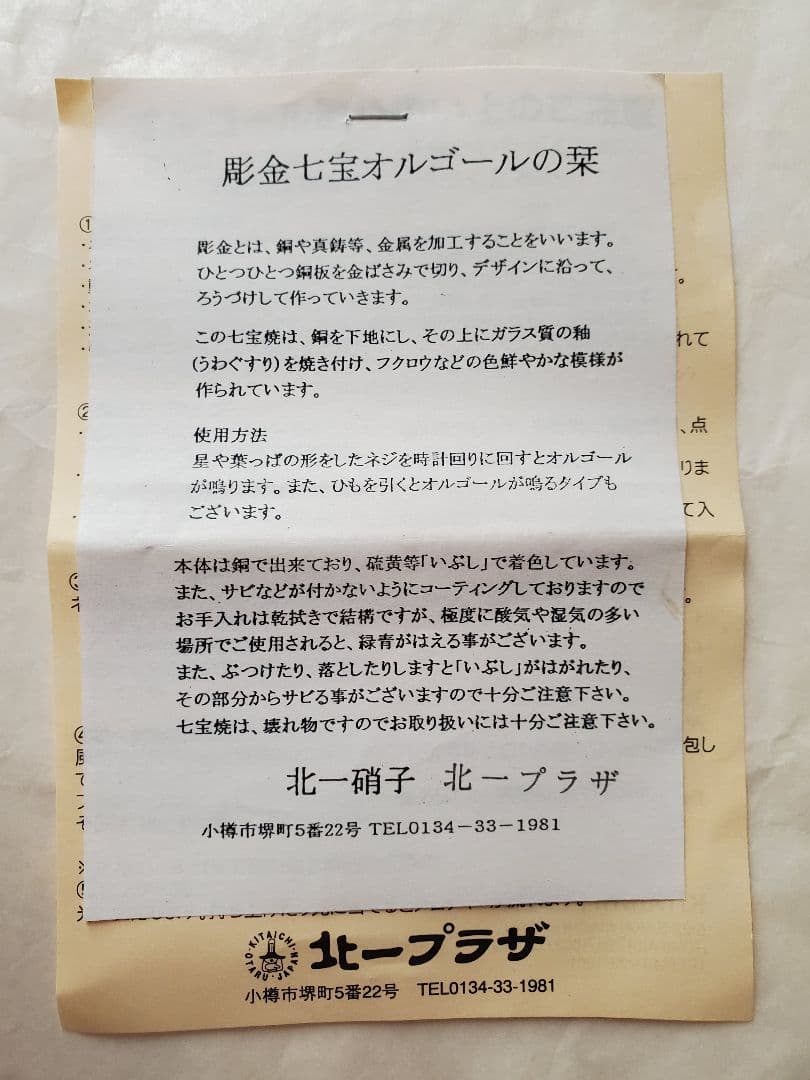 彫金七宝オルゴールの栞
彫金とは、銅や真鋳等、金属を加工することをいいます。
ひとつひとつ銅板を金ばさみで切り、デザインに沿って、
ろうづけして作っていきます。
この七宝焼は、銅を下地にし、その上にガラス質の釉
(うわぐすり)を焼き付け、フクロウなどの色鮮やかな模様が
作られています。
使用方法
星や葉っぱの形をしたネジを時計回りに回すとオルゴール
が鳴ります。また、ひもを引くとオルゴールが鳴るタイプも
ございます。
本体は銅で出来ており、硫黄等「いぶし」で着色しています。
また、サビなどが付かないようにコーティングしておりますので
お手入れは乾拭きで結構ですが、極度に酸気や湿気の多い
場所でご使用されると、緑青がはえる事がございます。
また、ぶつけたり、落としたりしますと「いぶし」がはがれたり、
その部分からサビる事がございますので十分ご注意下さい。
七宝焼は、壊れ物ですのでお取り扱いには十分ご注意下さい。
北一硝子 北一プラザ
小樽市堺町5番22号 TEL0134-33-1981
①
れて
②
、点
りま
て入
④
包し
風
て
※
⑤
KITAICHI
OTARU・JAPAN
北一プラザ
小樽市堺町5番22号 TEL0134-33-1981